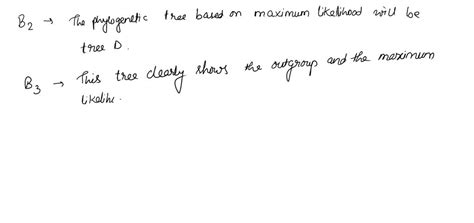 B2 → The phylogenetic tree based on maximum likelihood will be
tree D.
B3 → This tree clearly shows the outgroup and the maximum
likelihe.